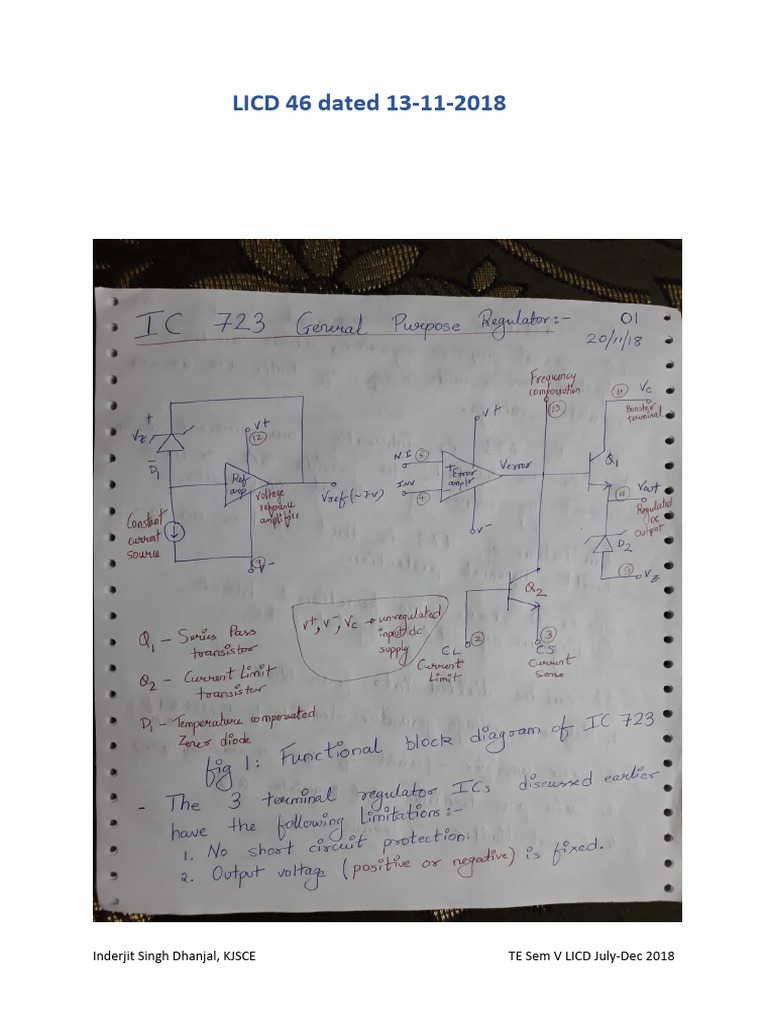 LICD 46 dated 13-11-2018
IC 723 General Purpose Regulator:-
01
20/11/18
+
VZ
-
D1
Constant
current
source
V+
12
Ref
amp
voltage
reference
amplifier
Vref (~7V)
7
V-
N.I
5
INV
4
V+
+
Error
amplr
-
V-
Verror
Frequency
compensation
13
11
VC
Booster
terminal
Q1
10
Vout
Regulated
DC
Output
D2
9
VZ
Q2
2
CL
Current
Limit
3
CS
Current
Sense
V+, V-, VC → unregulated
input dc
supply
Q1 - Series Pass
transistor
Q2 - Current Limit
transistor
D1 - Temperature compensated
Zener diode
fig 1: Functional block diagram of IC 723
- The 3 terminal regulator ICs discussed earlier
have the following limitations:-
1. No short circuit protection.
2. Output voltage (positive or negative) is fixed.
Inderjit Singh Dhanjal, KJSCE
TE Sem V LICD July-Dec 2018